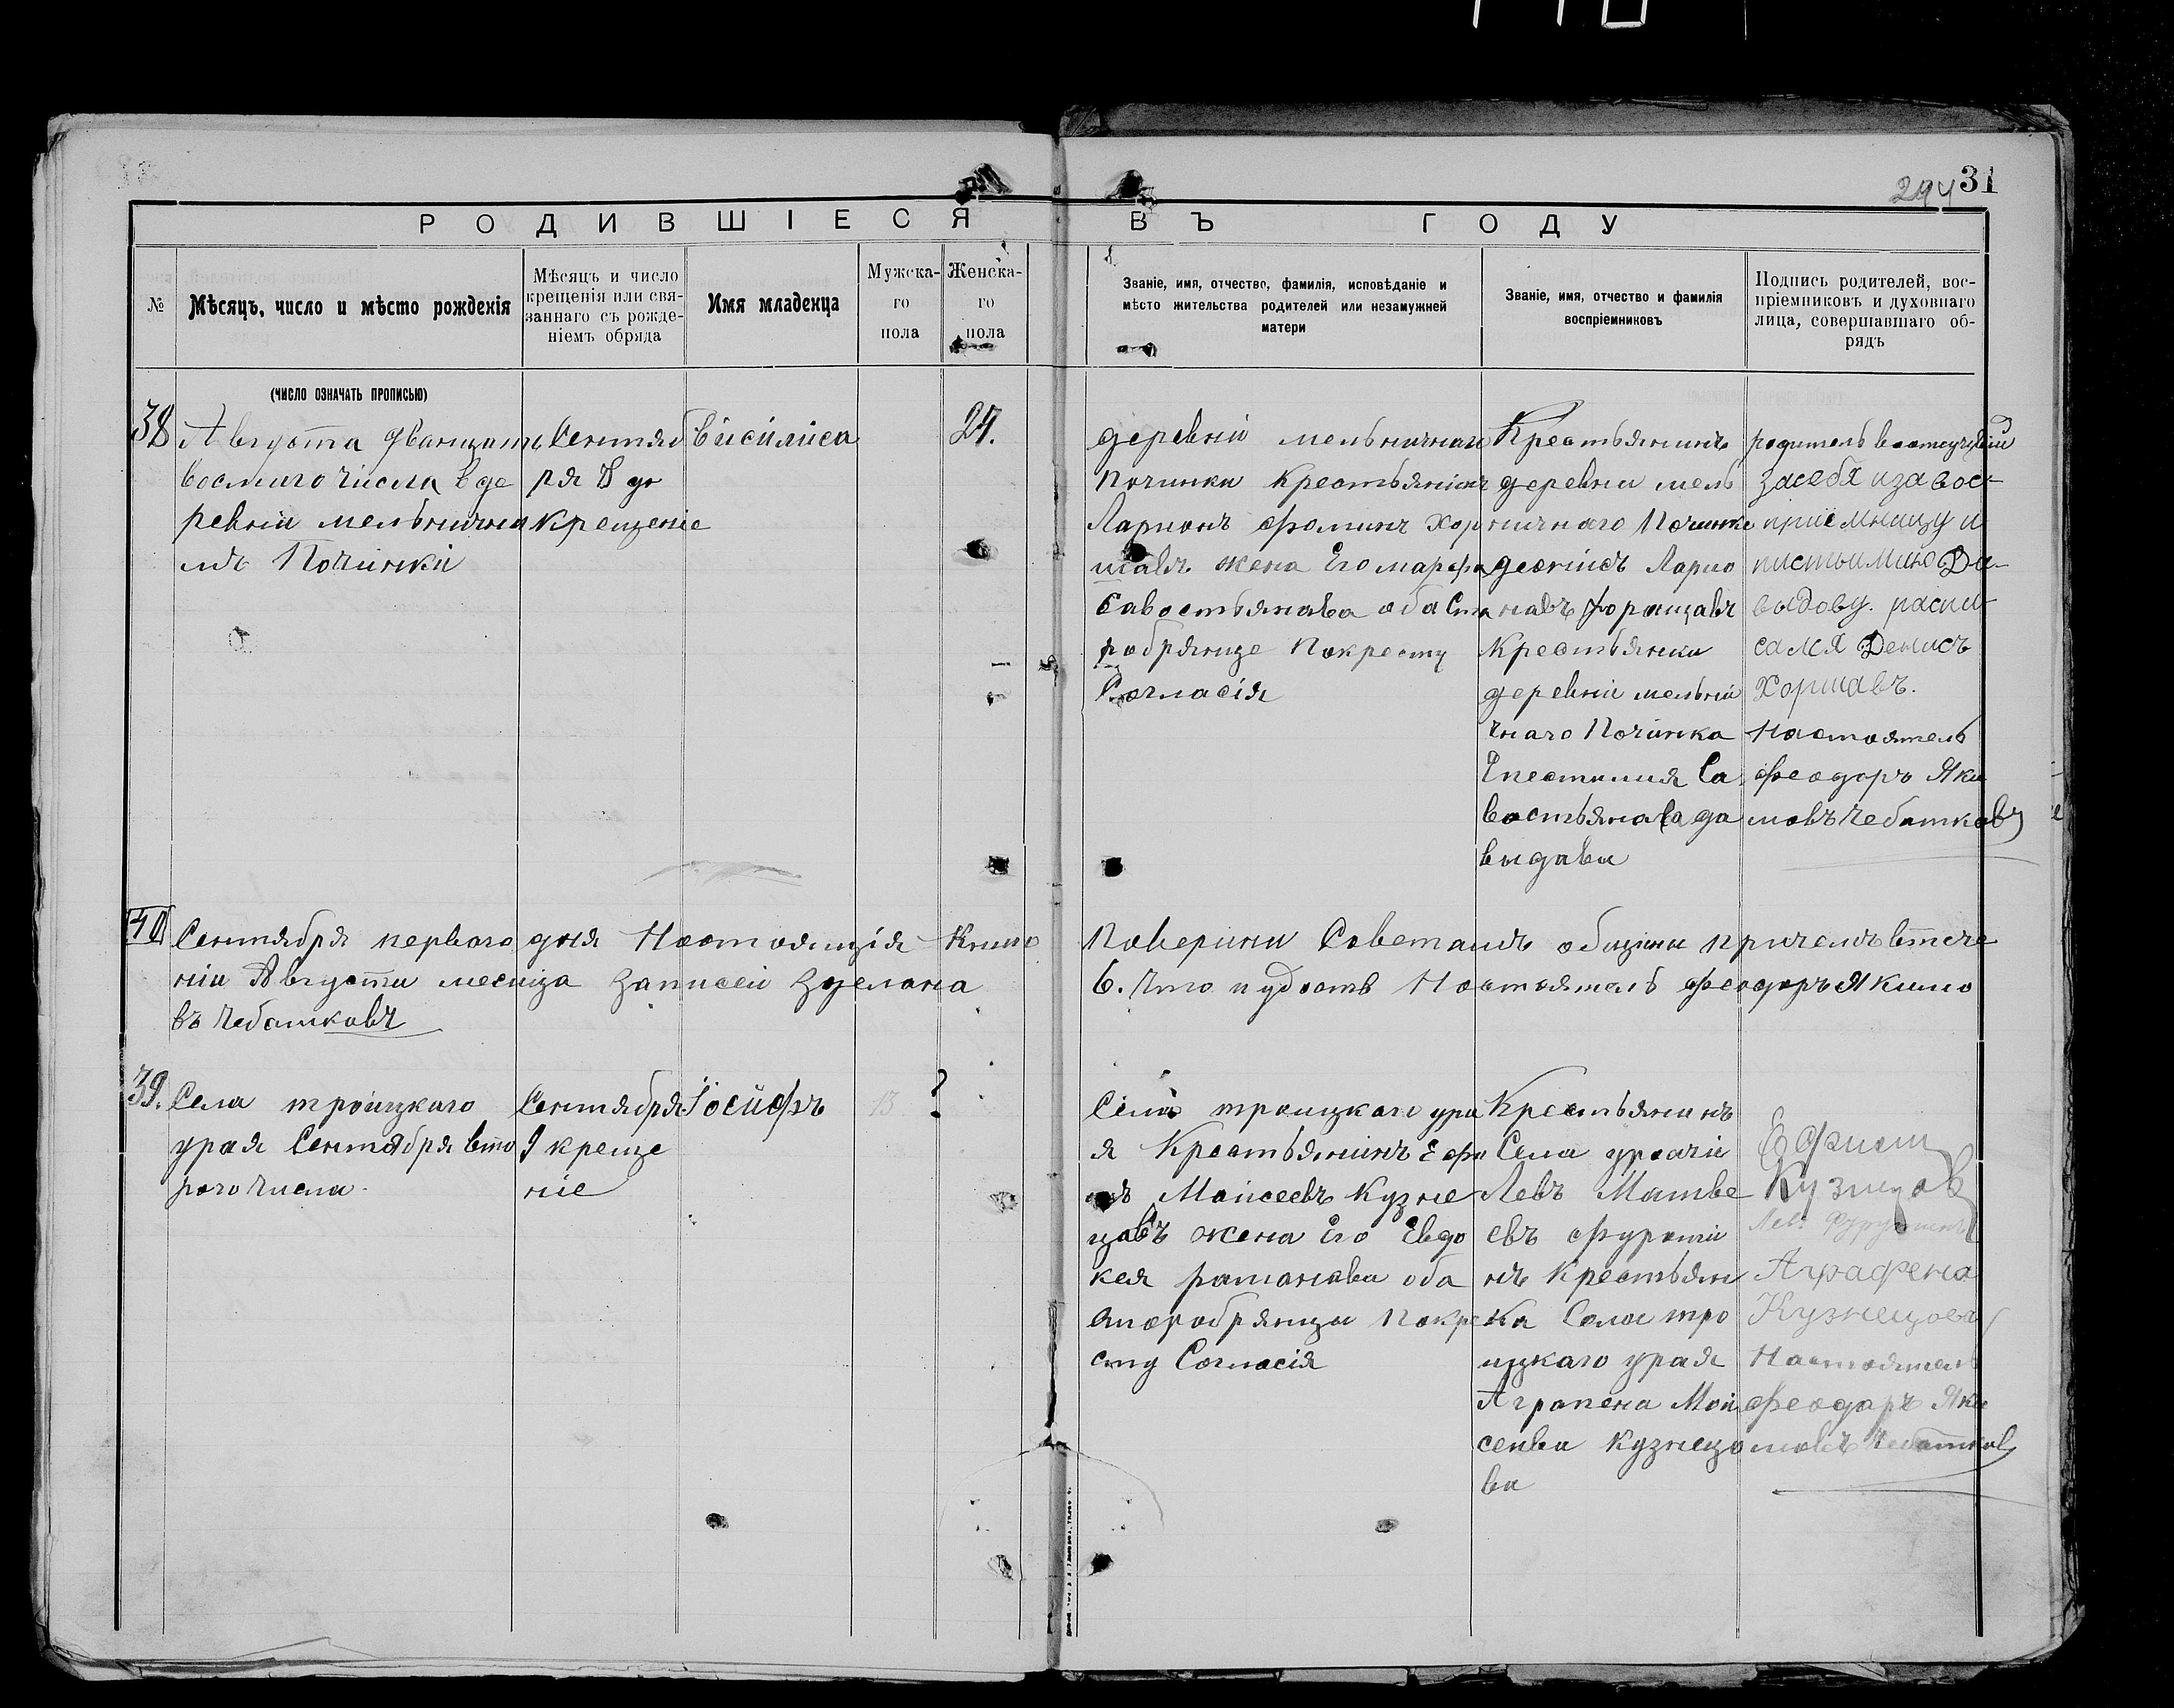 31
РОДИВШІЕСЯ ВЪ ГОДУ
№
Мѣсяцъ, число и мѣсто рожденія
Мѣсяцъ и число
крещенія или свя-
заннаго съ рожде-
ніемъ обряда
Имя младенца
Мужска-
го
пола
Женска-
го
пола
Званіе, имя, отчество, фамилія, исповѣданіе и
мѣсто жительства родителей или незамужней
матери
Званіе, имя, отчество и фамилія
воспріемниковъ
Подпись родителей, вос-
пріемниковъ и духовнаго
лица, совершавшаго об-
рядъ
(ЧИСЛО ОЗНАЧАТЬ ПРОПИСЬЮ)
38
Августа
восмаго числа в де
ревни мельнична
мъ Починки
Сентяб
ря 8 го
Крещеніе
Васйлиса
24.
деревни мельничнаги
Починки Крестьянинъ
Ларионъ Фоминъ Хор
шавъ жена Его марфа
Савостьянава оба Ста
робрянце Покресту
Согласія
Крестьянинъ
деревни мель
ничнаго Починке
Ларио
навъ
Крестьянки
деревни мельни
чнаго Починка
Са
востьянава да
выдава
родитель
засебя иза вос-
приемницу и
Да-
выдову. распи-
сался Денисъ
Хоршавъ.
Настоятель
Феодоръ Яки
мовъ Чебатковъ
40
Сентября перваго дня Настоящія Книга Поверини Саветамъ общины причемъ втече
ніи Августи месяца Записей Зделана 6. Настоятель Феодоръ Якимо
въ Чебатковъ
39.
Села троицкаго
урая Сентября вто
рого числа.
Сентября
9 креще
ніе
Іосйфъ
13
?
Села троицкаго ура
я Крестьянинъ Ефи
мъ Моисеевъ Кузне
цовъ жена Его Евдо
кея раманова оба
старобрянцы Покре
сту Согласія
Крестьянинъ
Села
Левъ Матве
евъ
нъ Крестьян
ка Села тро
ицкаго урая
Аграпена Мои
сеива Кузнецо
ва
Ефим
Кузнецов
Аграфена
Кузнецова
Настоятель
Феодоръ Яки
мовъ Чебатковъ